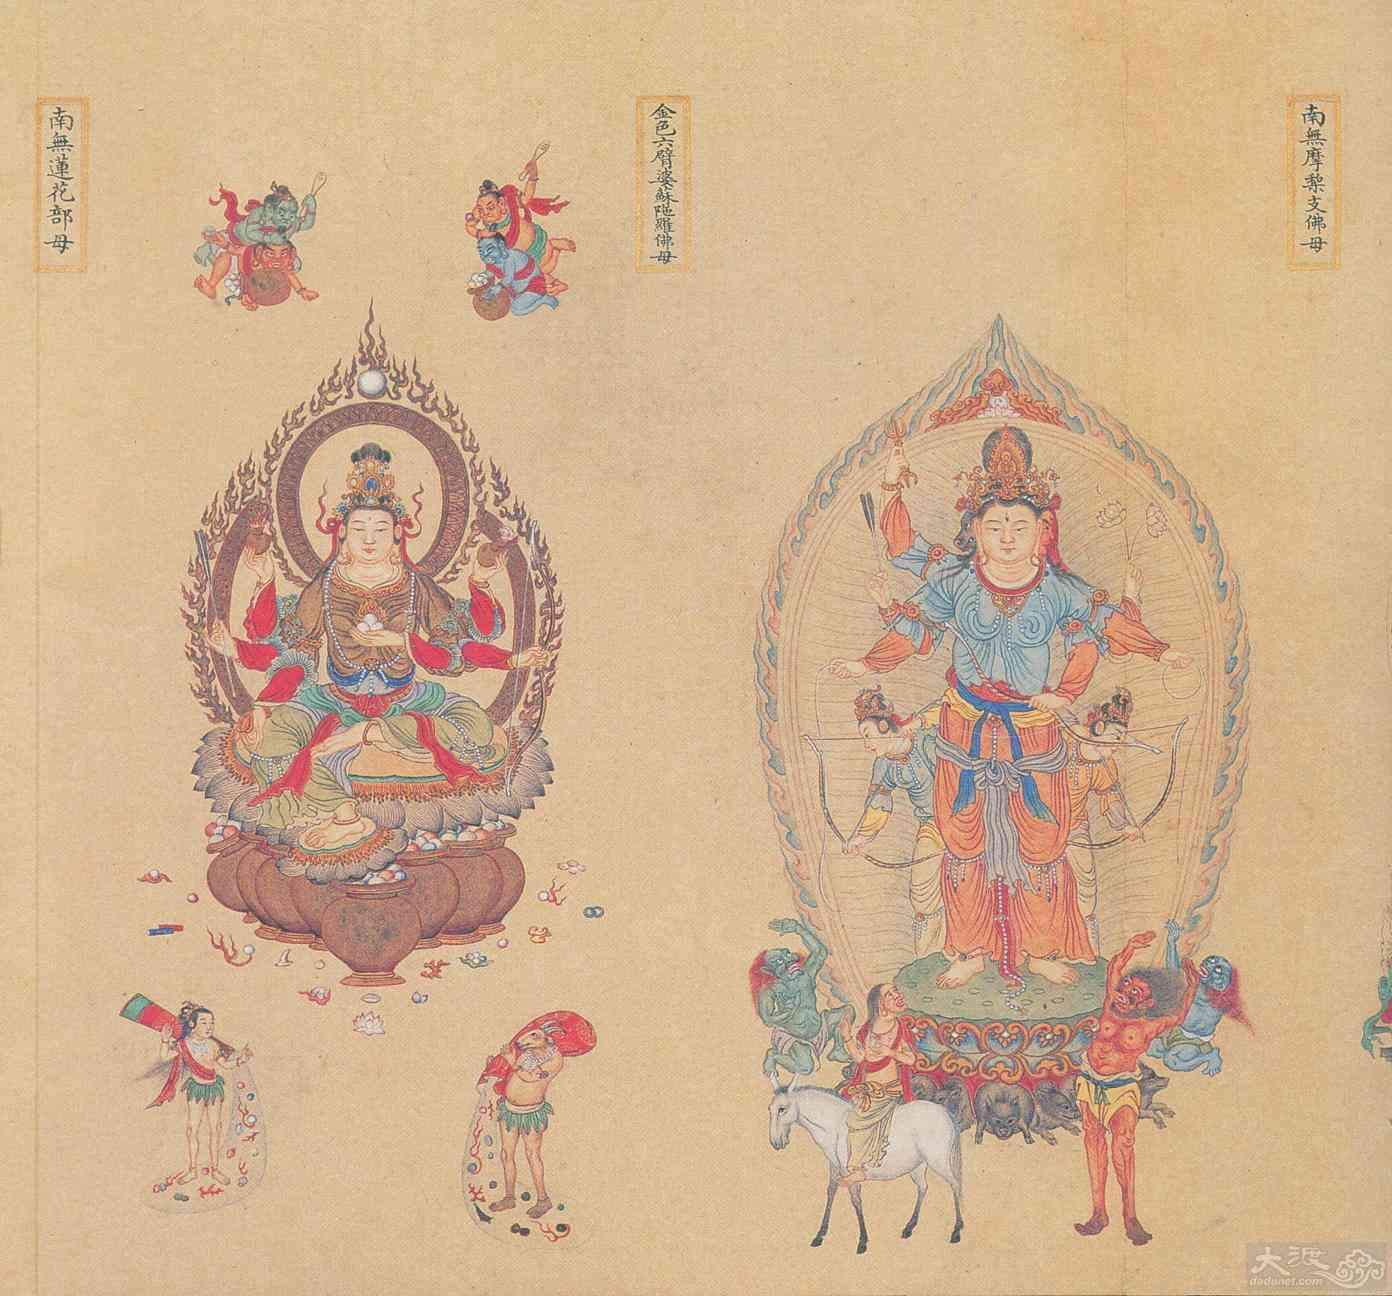 南無摩梨支佛母
金色六臂婆蘇陁羅佛母
南無蓮花部母
大渡
dadunet.com